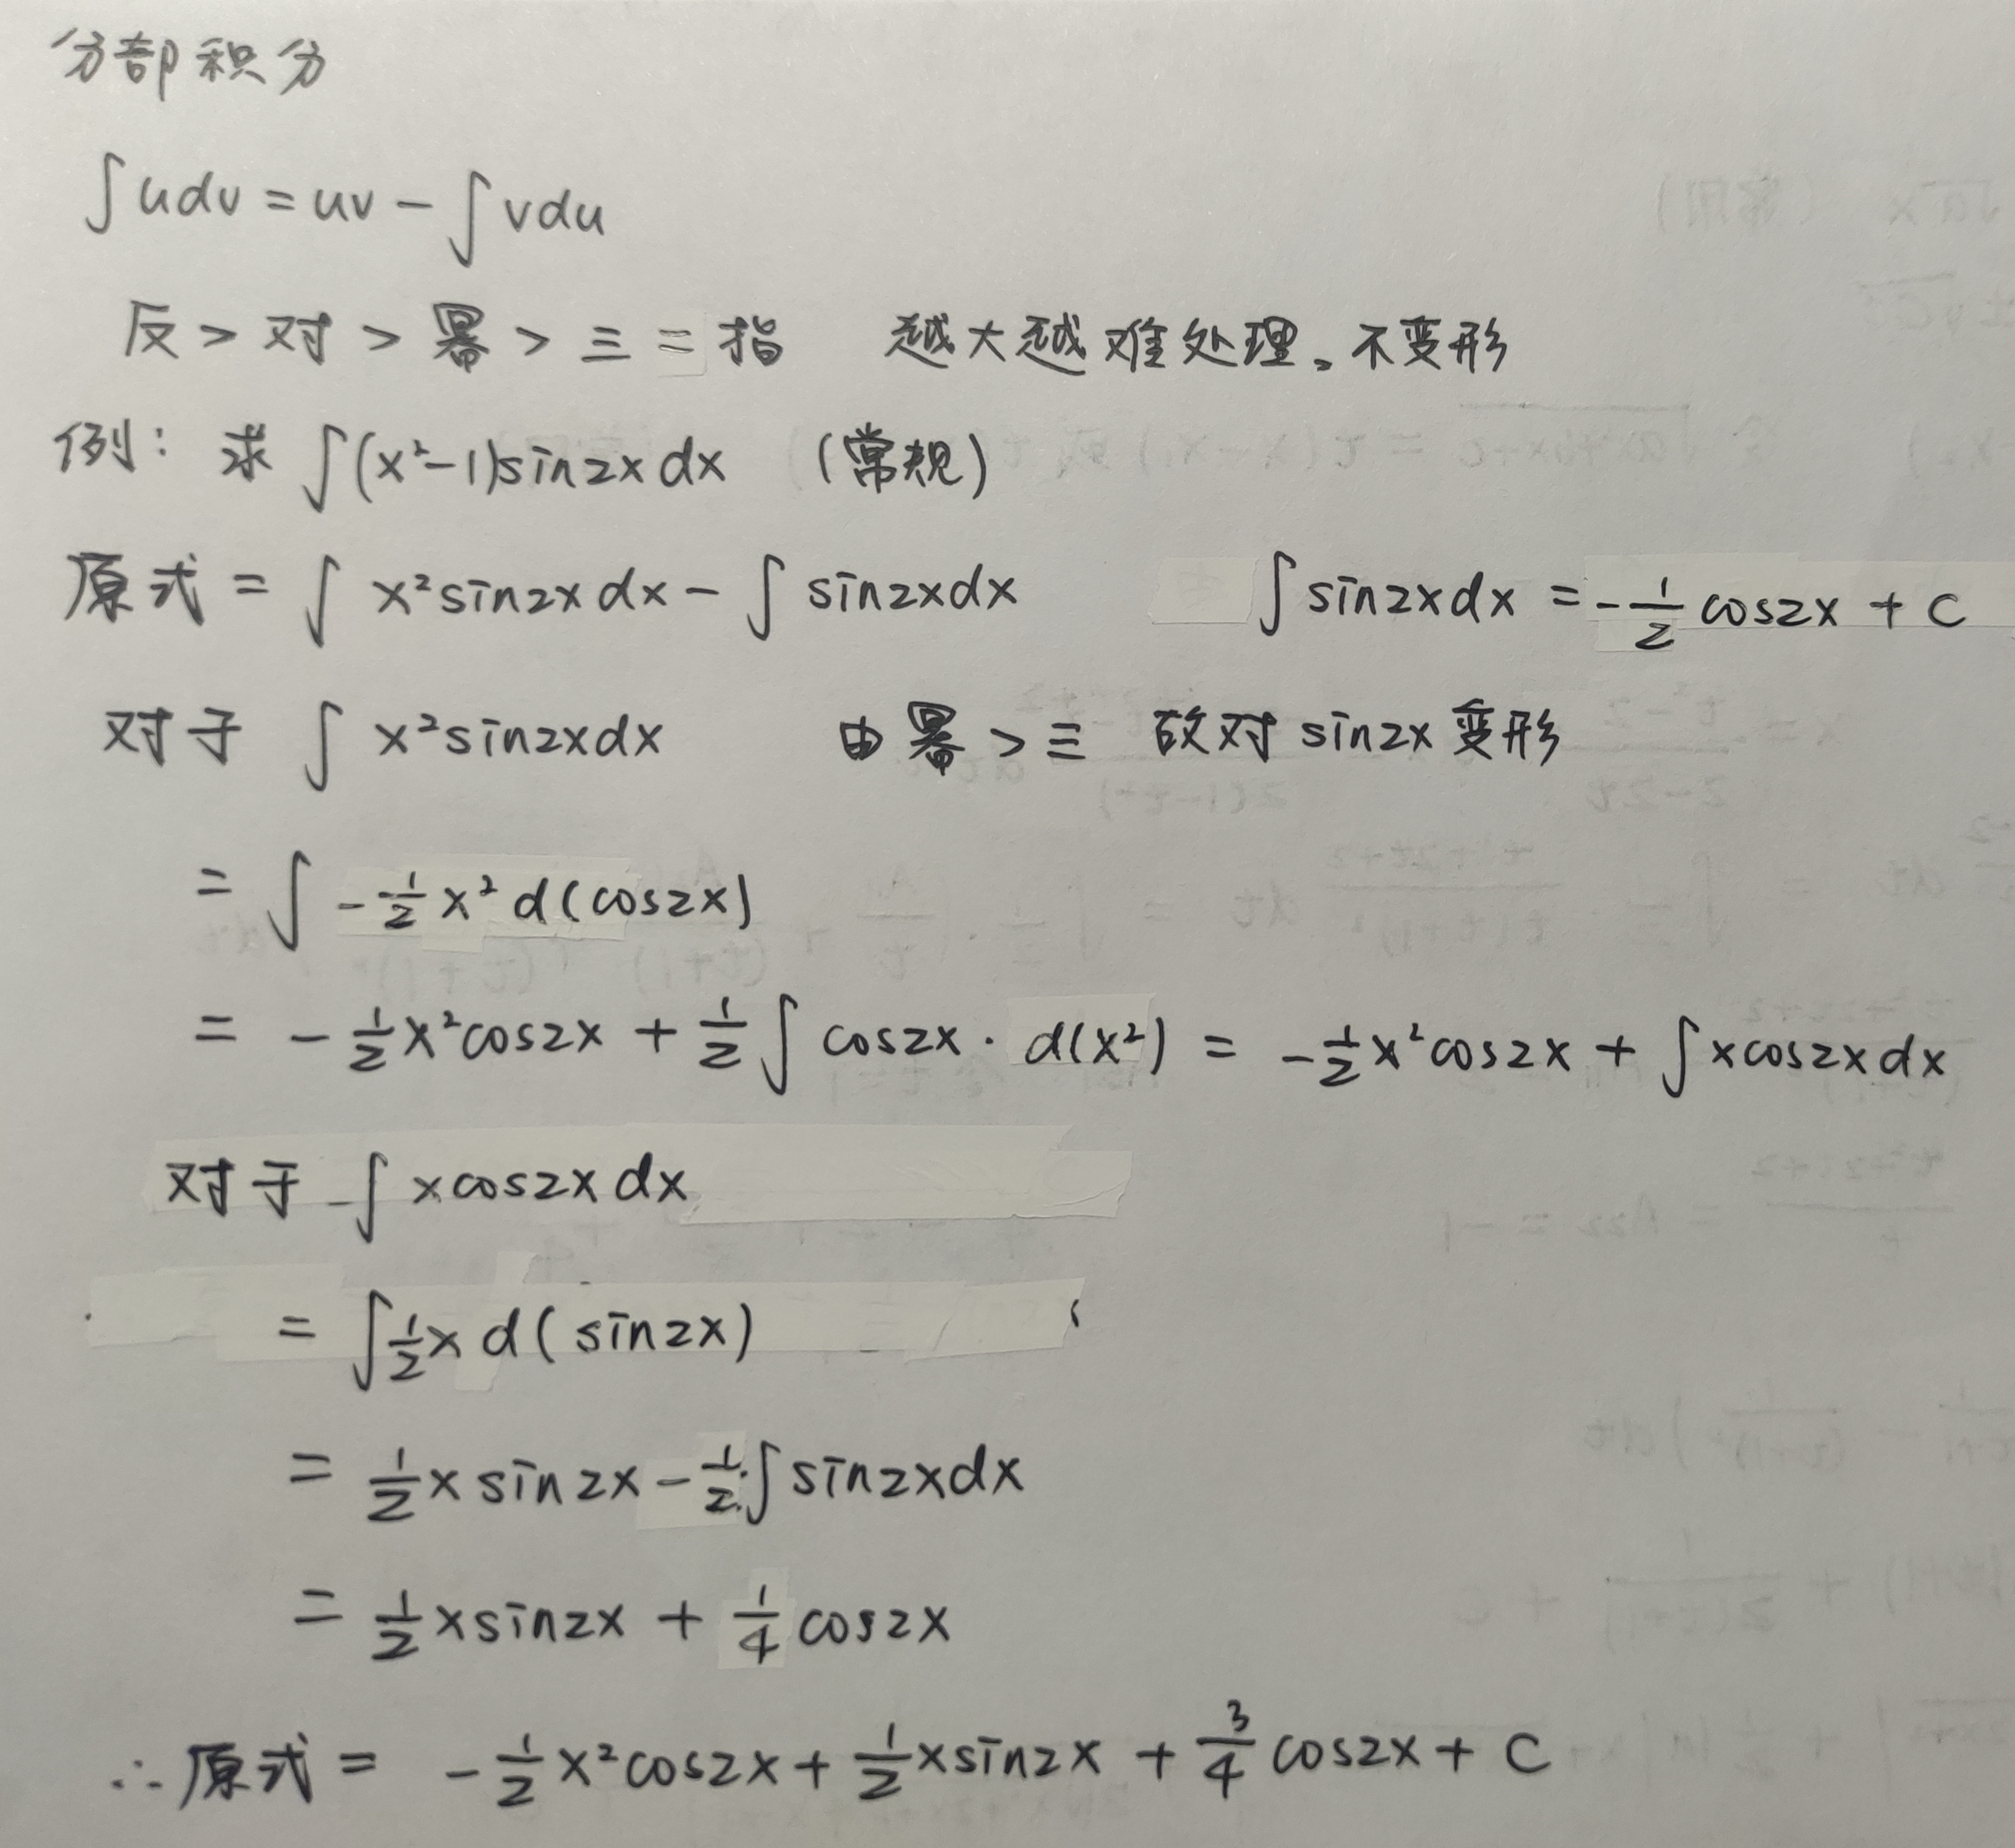 分部积分
∫udv = uv - ∫vdu
反 > 对 > 幂 > 三 = 指 越大越难处理。不变形
例：求 ∫(x²-1)sin2x dx （常规）
原式 = ∫ x²sin2x dx - ∫ sin2xdx ∫ sin2xdx = -1/2 cos2x + C
对于 ∫ x²sin2xdx 由幂 > 三 故对 sin2x 变形
= ∫ -1/2 x² d(cos2x)
= -1/2 x²cos2x + 1/2 ∫ cos2x · d(x²) = -1/2 x²cos2x + ∫xcos2x dx
对于 ∫ xcos2x dx
= ∫ 1/2 x d(sin2x)
= 1/2 x sin2x - 1/2 ∫ sin2xdx
= 1/2 xsin2x + 1/4 cos2x
∴ 原式 = -1/2 x²cos2x + 1/2 xsin2x + 3/4 cos2x + C